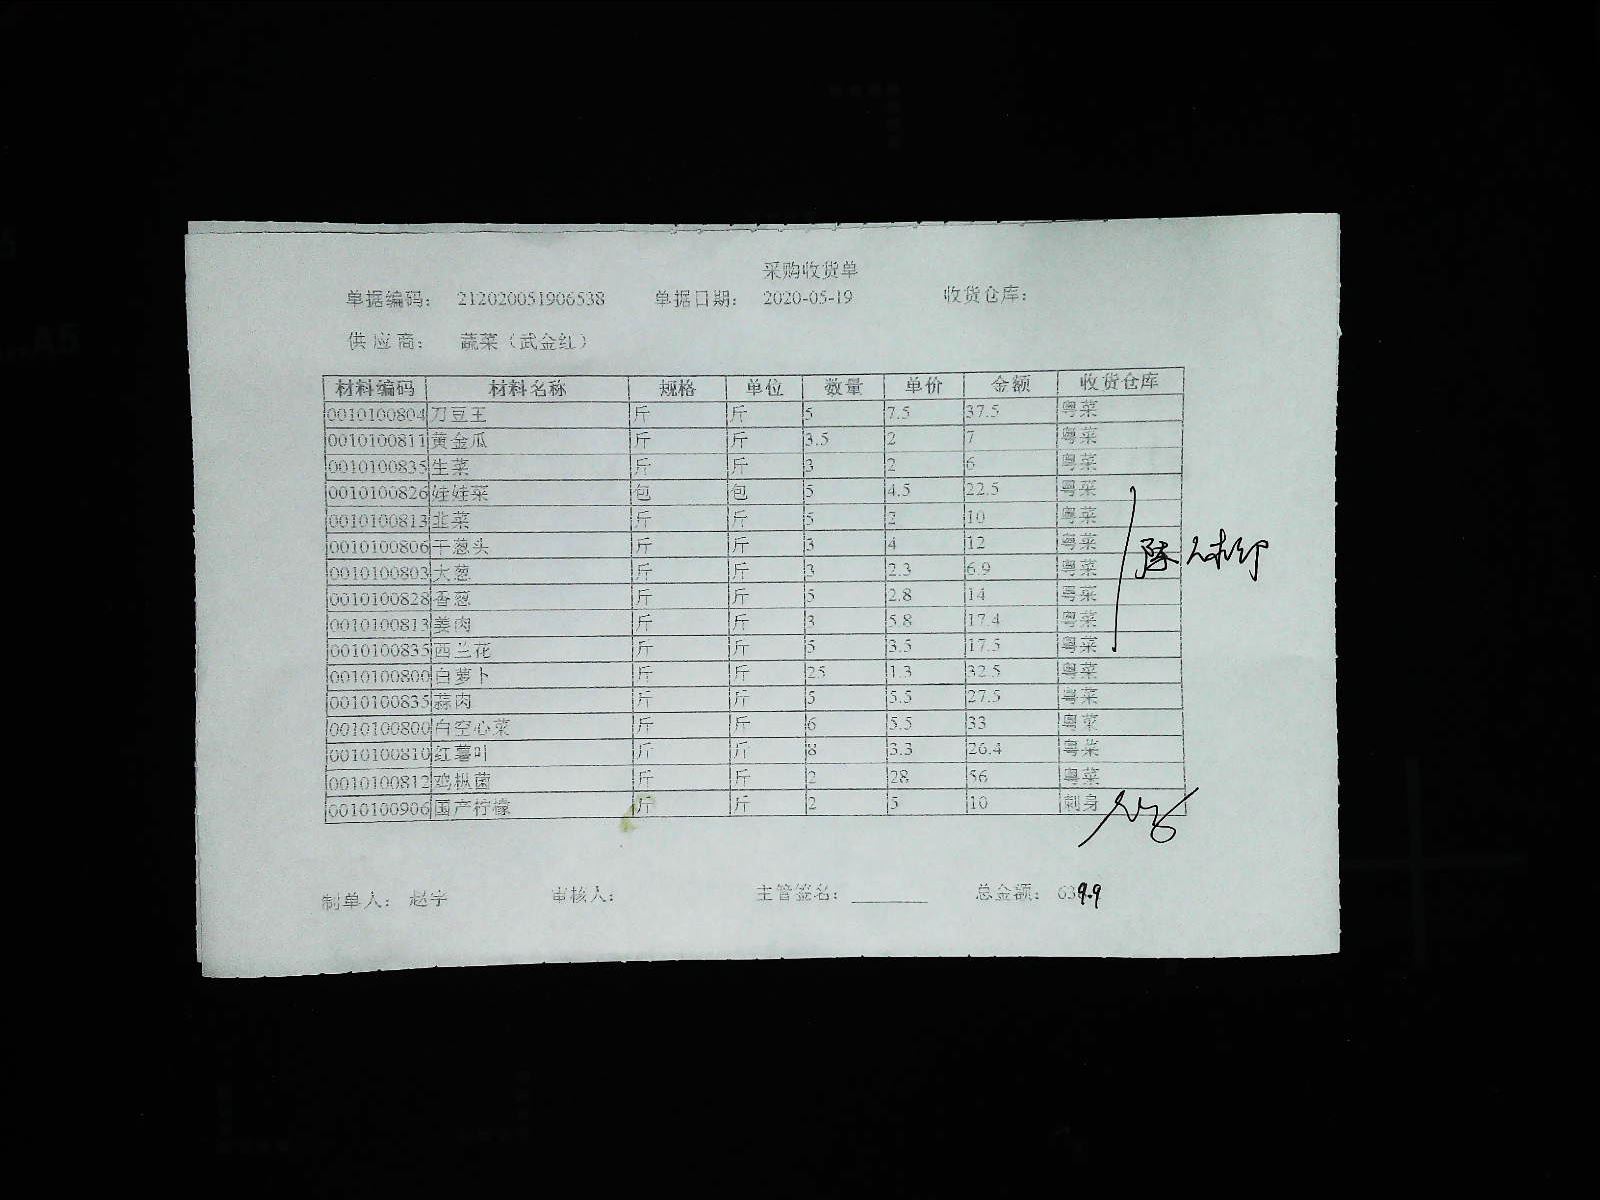 采购收货单
单据编码: 212020051906538 单据日期: 2020-05-19 收货仓库:
供应商: 蔬菜（武金红）
材料编码 材料名称 规格 单位 数量 单价 金额 收货仓库
0010100804 刀豆王 斤 斤 5 7.5 37.5 粤菜
0010100811 黄金瓜 斤 斤 3.5 2 7 粤菜
0010100835 生菜 斤 斤 3 2 6 粤菜
0010100826 娃娃菜 包 包 5 4.5 22.5 粤菜
0010100813 韭菜 斤 斤 5 2 10 粤菜
0010100806 干葱头 斤 斤 3 4 12 粤菜
0010100803 大葱 斤 斤 3 2.3 6.9 粤菜
0010100828 香葱 斤 斤 5 2.8 14 粤菜
0010100813 姜肉 斤 斤 3 5.8 17.4 粤菜
0010100835 西兰花 斤 斤 5 3.5 17.5 粤菜
0010100800 白萝卜 斤 斤 25 1.3 32.5 粤菜
0010100835 蒜肉 斤 斤 5 5.5 27.5 粤菜
0010100800 白空心菜 斤 斤 6 5.5 33 粤菜
0010100810 红薯叶 斤 斤 8 3.3 26.4 粤菜
0010100812 鸡枞菌 斤 斤 2 28 56 粤菜
0010100906 国产柠檬 斤 斤 2 5 10 刺身
制单人: 赵宇 审核人: 主管签名: 总金额: 639.9